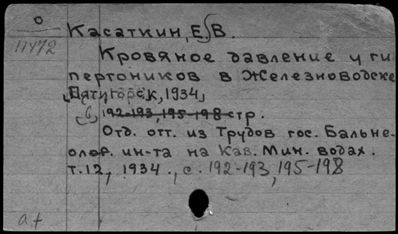 О
11472
Касаткин, Е. В.
Кровяное давление у ги
пертоников в Железноводске
Пятигорск, 1934,
192-193, 195-198 стр.
Отд. отт. из Трудов гос. Бальне-
олог. ин-та на Кав. Мин. водах.
т.12, 1934., с. 192-193, 195-198